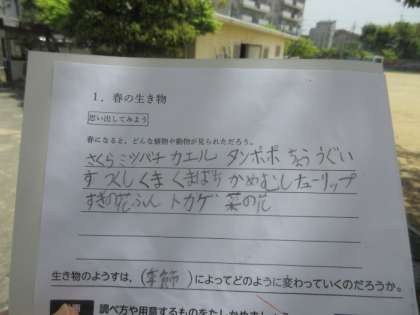 1．春の生き物
思い出してみよう
春になると、どんな植物や動物が見られただろう。
さくら ミツバチ カエル タンポポ ちょう うぐい
す つくし くま くまばち かめむし チューリップ
すぎの花ふん トカゲ 菜の花
生き物のようすは、（季節）によってどのように変わっていくのだろうか。
調べ方や用意するものをたしかめましょう